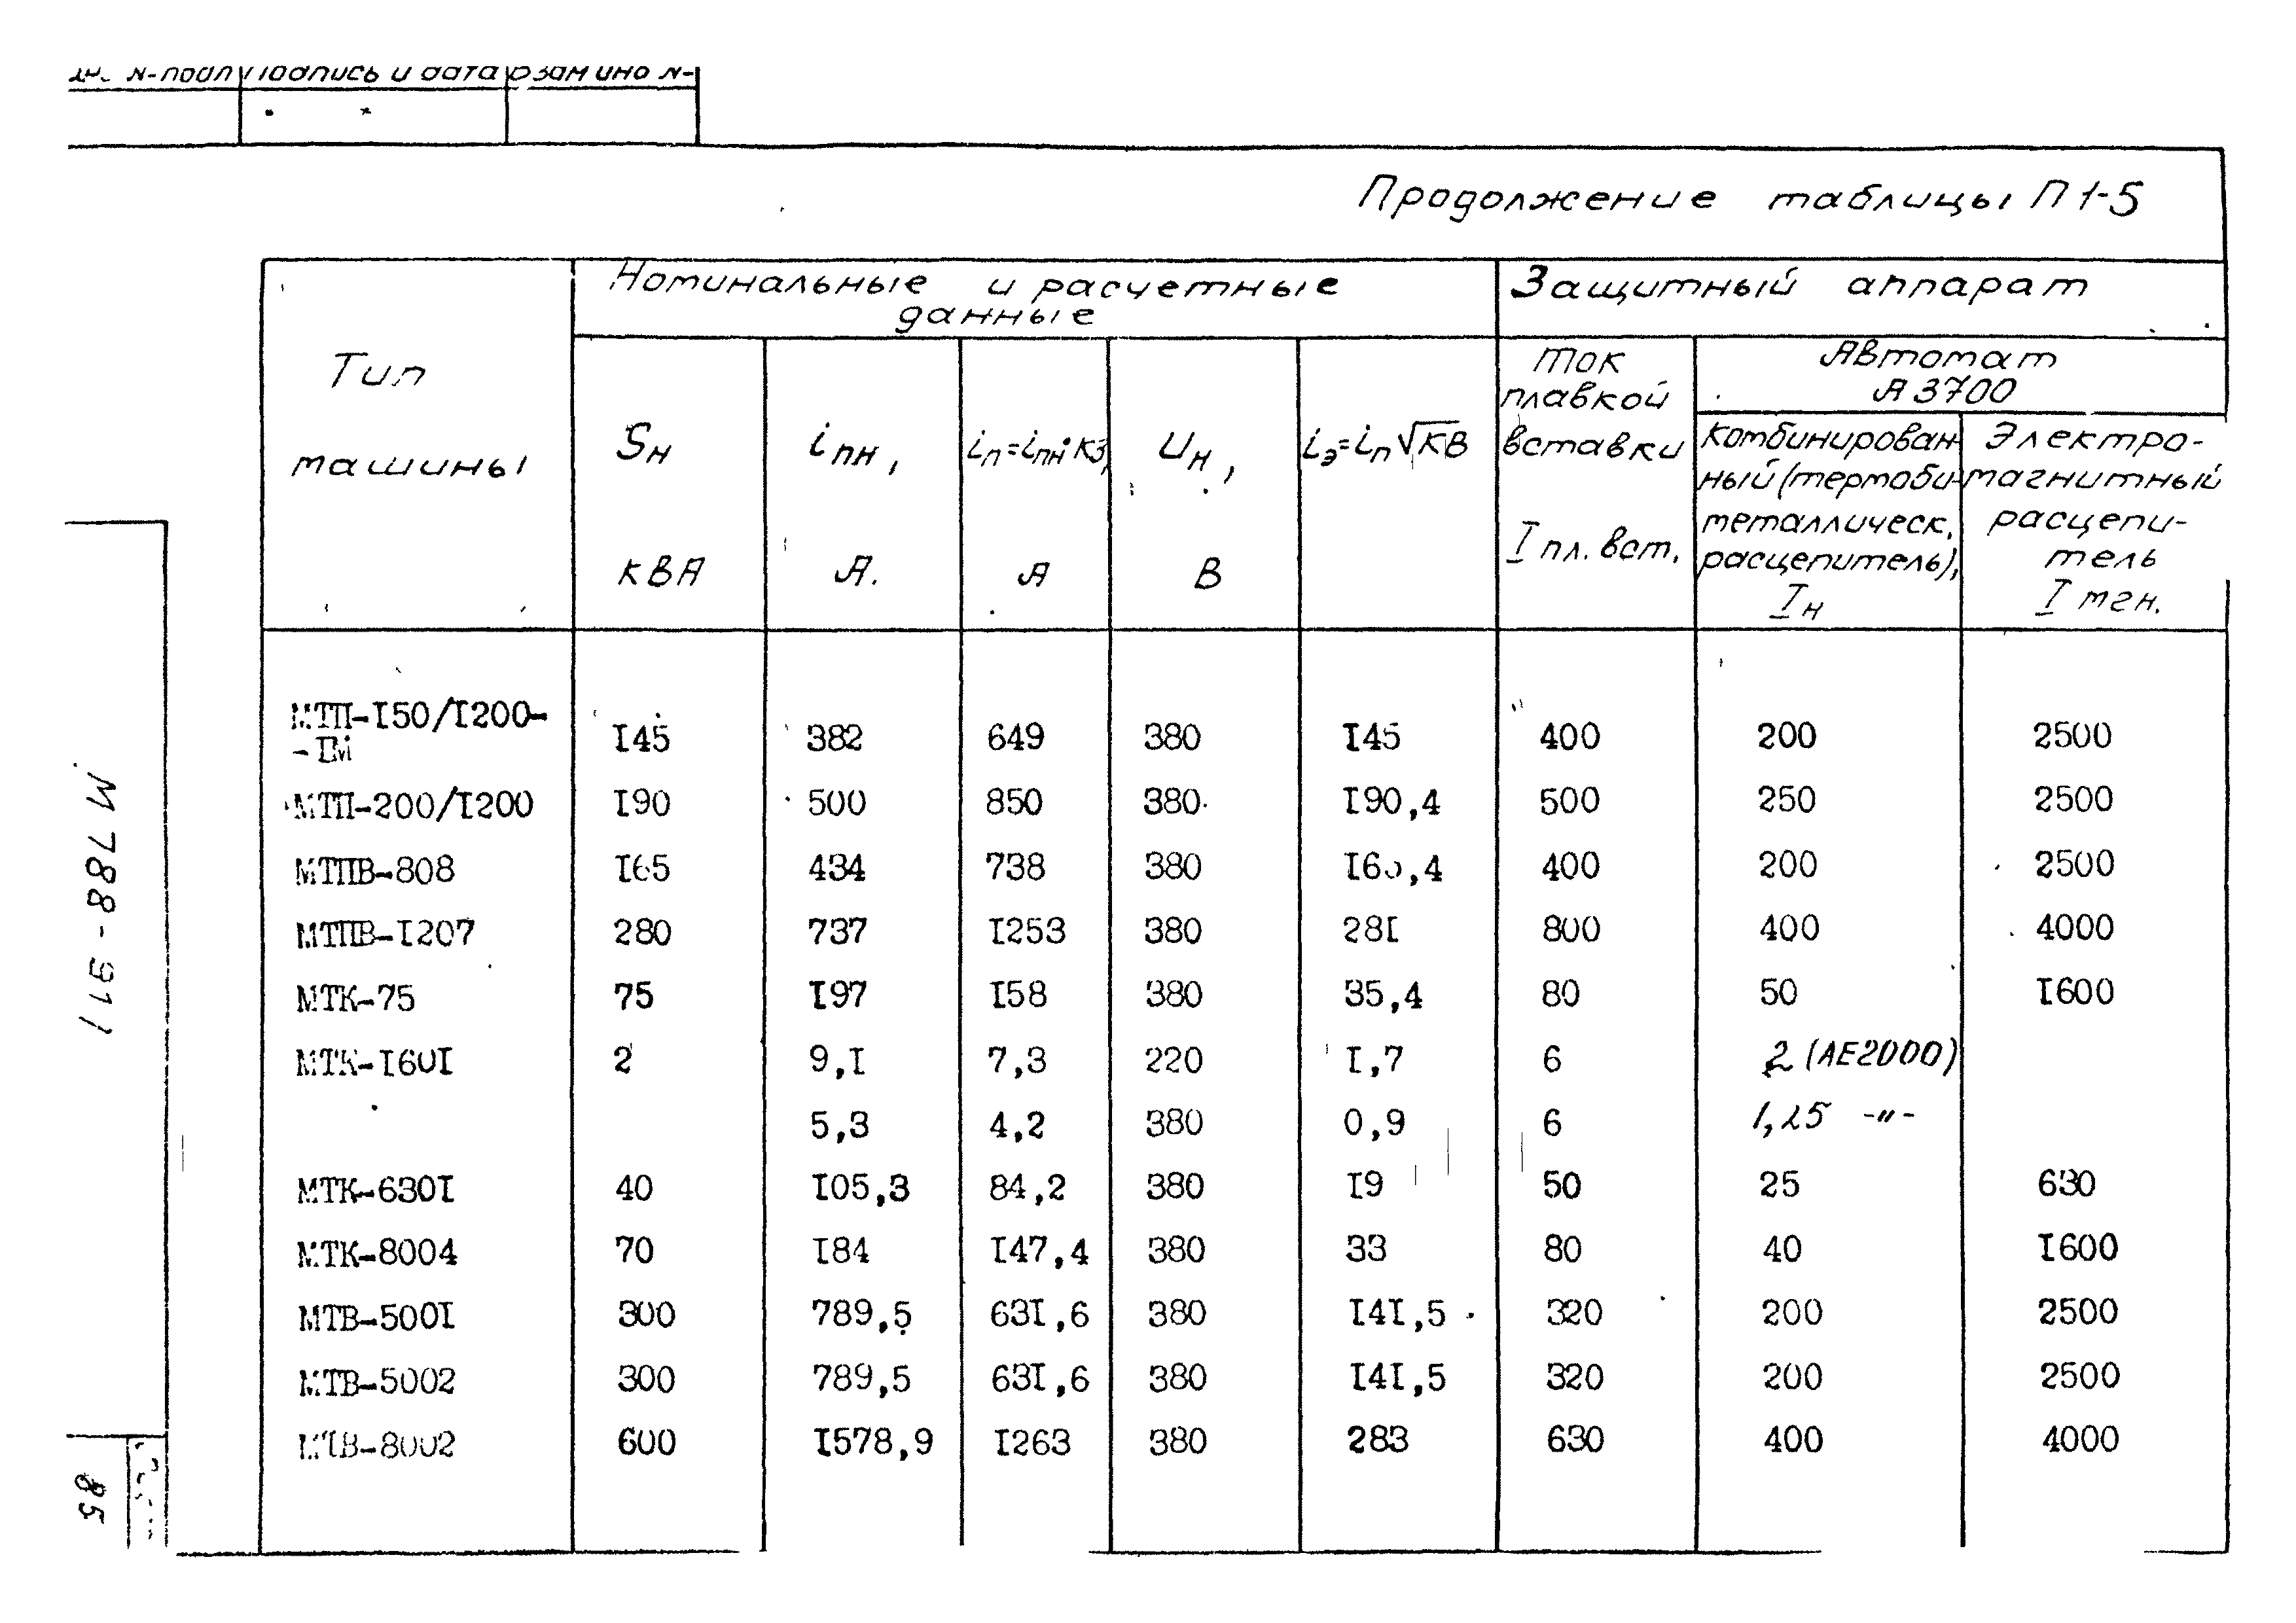 N-подл Подпись и дата Взам инв N-
Продолжение таблицы П 1-5
Тип машины
Номинальные и расчетные данные
Защитный аппарат
Sн кВА
iпн, А.
iп=iпн·КЗ, А
Uн, В
iэ=iп√КВ
Ток плавкой вставки I пл. вст.
Автомат А 3700
Комбинирован-
ный (термоби-
металлическ.
расцепитель),
Iн
Электро-
магнитный
расцепи-
тель
I мгн.
МТП-I50/I200-
-IM I45 382 649 380 I45 400 200 2500
МТП-200/I200 I90 500 850 380 I90,4 500 250 2500
МТПВ-808 I65 434 738 380 400 200 2500
МТПВ-I207 280 737 I253 380 28I 800 400 4000
МТК-75 75 I97 I58 380 35,4 80 50 I600
МТК-I60I 2 9,I 7,3 220 I,7 6 2 (АЕ2000)
5,3 4,2 380 0,9 6 1,25 -"-
МТК-630I 40 I05,3 84,2 380 I9 50 25 630
МТК-8004 70 I84 I47,4 380 33 80 40 I600
МТВ-500I 300 789,5 63I,6 380 I4I,5 320 200 2500
МТВ-5002 300 789,5 63I,6 380 I4I,5 320 200 2500
МТВ-8002 600 I578,9 I263 380 283 630 400 4000
М788-911
85